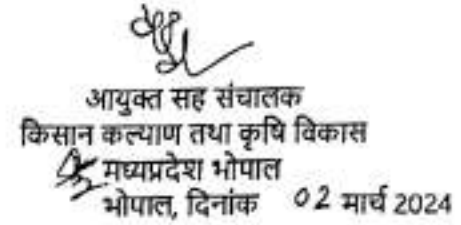 आयुक्त सह संचालक
किसान कल्याण तथा कृषि विकास
मध्यप्रदेश भोपाल
भोपाल, दिनांक 02 मार्च 2024